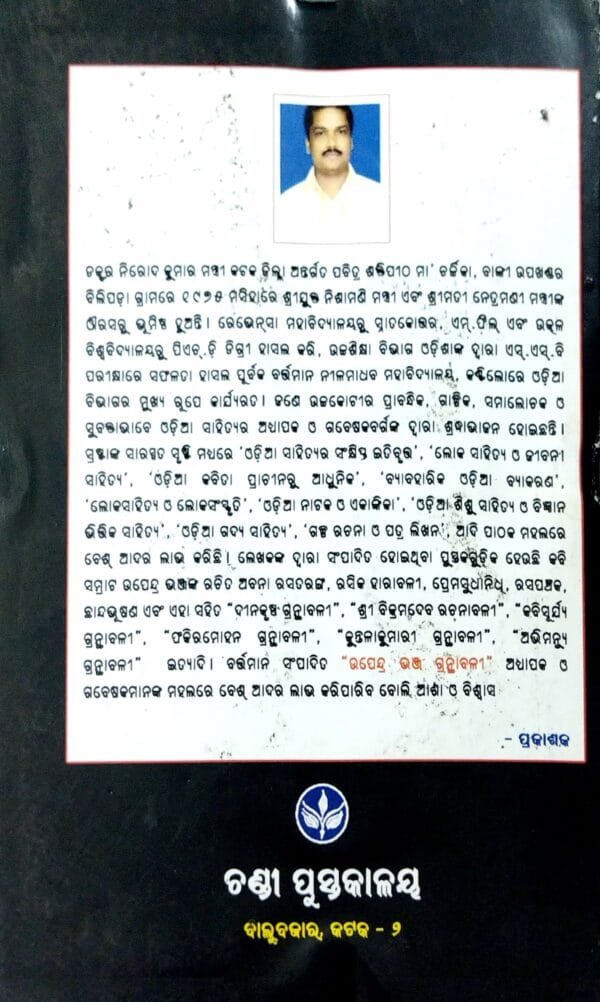 ଡକ୍ଟର ନିରୋଦ କୁମାର ମନ୍ତ୍ରୀ କଟକ ଜିଲ୍ଲା ଅନ୍ତର୍ଗତ ପବିତ୍ର ଶକ୍ତିପୀଠ ମା' ଚର୍ଚ୍ଚିକା, ବାଙ୍କୀ ଉପଖଣ୍ଡର
ବିଲିପଡ଼ା ଗ୍ରାମରେ ୧୯୭୫ ମସିହାରେ ଶ୍ରୀଯୁକ୍ତ ନିଶାମଣି ମନ୍ତ୍ରୀ ଏବଂ ଶ୍ରୀମତୀ ନେତ୍ରମଣୀ ମନ୍ତ୍ରୀଙ୍କ
ଔରସରୁ ଭୂମିଷ୍ଠ ହୁଅନ୍ତି। ରେଭେନ୍ସା ମହାବିଦ୍ୟାଳୟରୁ ସ୍ନାତକୋତ୍ତର, ଏମ୍.ଫିଲ୍ ଏବଂ ଉତ୍କଳ
ବିଶ୍ୱବିଦ୍ୟାଳୟରୁ ପିଏଚ୍.ଡ଼ି ଡିଗ୍ରୀ ହାସଲ କରି, ଉଚ୍ଚଶିକ୍ଷା ବିଭାଗ ଓଡ଼ିଶାଙ୍କ ଦ୍ୱାରା ଏସ୍.ଏସ୍.ବି
ପରୀକ୍ଷାରେ ସଫଳତା ହାସଲ ପୂର୍ବକ ବର୍ତ୍ତମାନ ନୀଳମାଧବ ମହାବିଦ୍ୟାଳୟ, କଣ୍ଟିଲୋରେ ଓଡ଼ିଆ
ବିଭାଗର ମୁଖ୍ୟ ରୂପେ କାର୍ଯ୍ୟରତ। ଜଣେ ଉଚ୍ଚକୋଟୀର ପ୍ରାବନ୍ଧିକ, ଗାଳ୍ପିକ, ସମାଲୋଚକ ଓ
ସୁବକ୍ତାଭାବେ ଓଡ଼ିଆ ସାହିତ୍ୟର ଅଧ୍ୟାପକ ଓ ଗବେଷକବର୍ଗଙ୍କ ଦ୍ୱାରା ଶ୍ରଦ୍ଧାଭାଜନ ହୋଇଛନ୍ତି।
ସ୍ରଷ୍ଟାଙ୍କ ସାରସ୍ୱତ ସୃଷ୍ଟି ମଧ୍ୟରେ 'ଓଡ଼ିଆ ସାହିତ୍ୟର ସଂକ୍ଷିପ୍ତ ଇତିବୃତ୍ତ', 'ଲୋକ ସାହିତ୍ୟ ଓ ଜୀବନୀ
ସାହିତ୍ୟ', 'ଓଡ଼ିଆ କବିତା ପ୍ରାଚୀନରୁ ଆଧୁନିକ', 'ବ୍ୟାବହାରିକ ଓଡ଼ିଆ ବ୍ୟାକରଣ',
'ଲୋକସାହିତ୍ୟ ଓ ଲୋକସଂସ୍କୃତି', 'ଓଡ଼ିଆ ନାଟକ ଓ ଏକାଙ୍କିକା', 'ଓଡ଼ିଆ ଶିଶୁ ସାହିତ୍ୟ ଓ ବିଜ୍ଞାନ
ଭିତ୍ତିକ ସାହିତ୍ୟ', 'ଓଡ଼ିଆ ଗଦ୍ୟ ସାହିତ୍ୟ', 'ଗଳ୍ପ ରଚନା ଓ ପତ୍ର ଲିଖନ', ଆଦି ପାଠକ ମହଲରେ
ବେଶ୍ ଆଦର ଲାଭ କରିଛି। ଲେଖକଙ୍କ ଦ୍ୱାରା ସଂପାଦିତ ହୋଇଥିବା ପୁସ୍ତକଗୁଡ଼ିକ ହେଉଛି କବି
ସମ୍ରାଟ ଉପେନ୍ଦ୍ର ଭଞ୍ଜଙ୍କ ରଚିତ ଅବନା ରସତରଙ୍ଗ, ରସିକ ହାରାବଳୀ, ପ୍ରେମସୁଧାନିଧି, ରସପଞ୍ଚକ,
ଛାନ୍ଦଭୂଷଣ ଏବଂ ଏହା ସହିତ "ଦୀନକୃଷ୍ଣ ଗ୍ରନ୍ଥାବଳୀ", "ଶ୍ରୀ ବିକ୍ରମଦେବ ରଚନାବଳୀ", "କବିସୂର୍ଯ୍ୟ
ଗ୍ରନ୍ଥାବଳୀ", "ଫକିରମୋହନ ଗ୍ରନ୍ଥାବଳୀ", "କୁନ୍ତଳାକୁମାରୀ ଗ୍ରନ୍ଥାବଳୀ", "ଅଭିମନ୍ୟୁ
ଗ୍ରନ୍ଥାବଳୀ" ଇତ୍ୟାଦି। ବର୍ତ୍ତମାନ ସଂପାଦିତ "ଉପେନ୍ଦ୍ର ଭଞ୍ଜ ଗ୍ରନ୍ଥାବଳୀ" ଅଧ୍ୟାପକ ଓ
ଗବେଷକମାନଙ୍କ ମହଲରେ ବେଶ୍ ଆଦର ଲାଭ କରିପାରିବ ବୋଲି ଆଶା ଓ ବିଶ୍ୱାସ
- ପ୍ରକାଶକ
ଚଣ୍ଡୀ ପୁସ୍ତକାଳୟ
ବାଲୁବଜାର, କଟକ - ୨